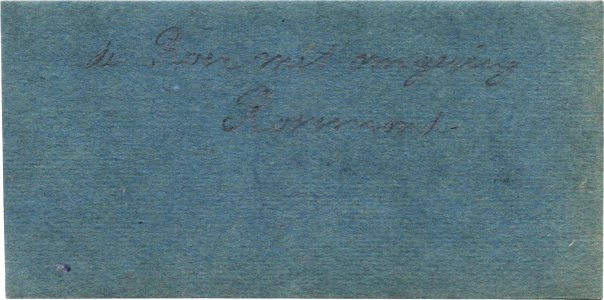 de Roer met omgeving
Roermond.